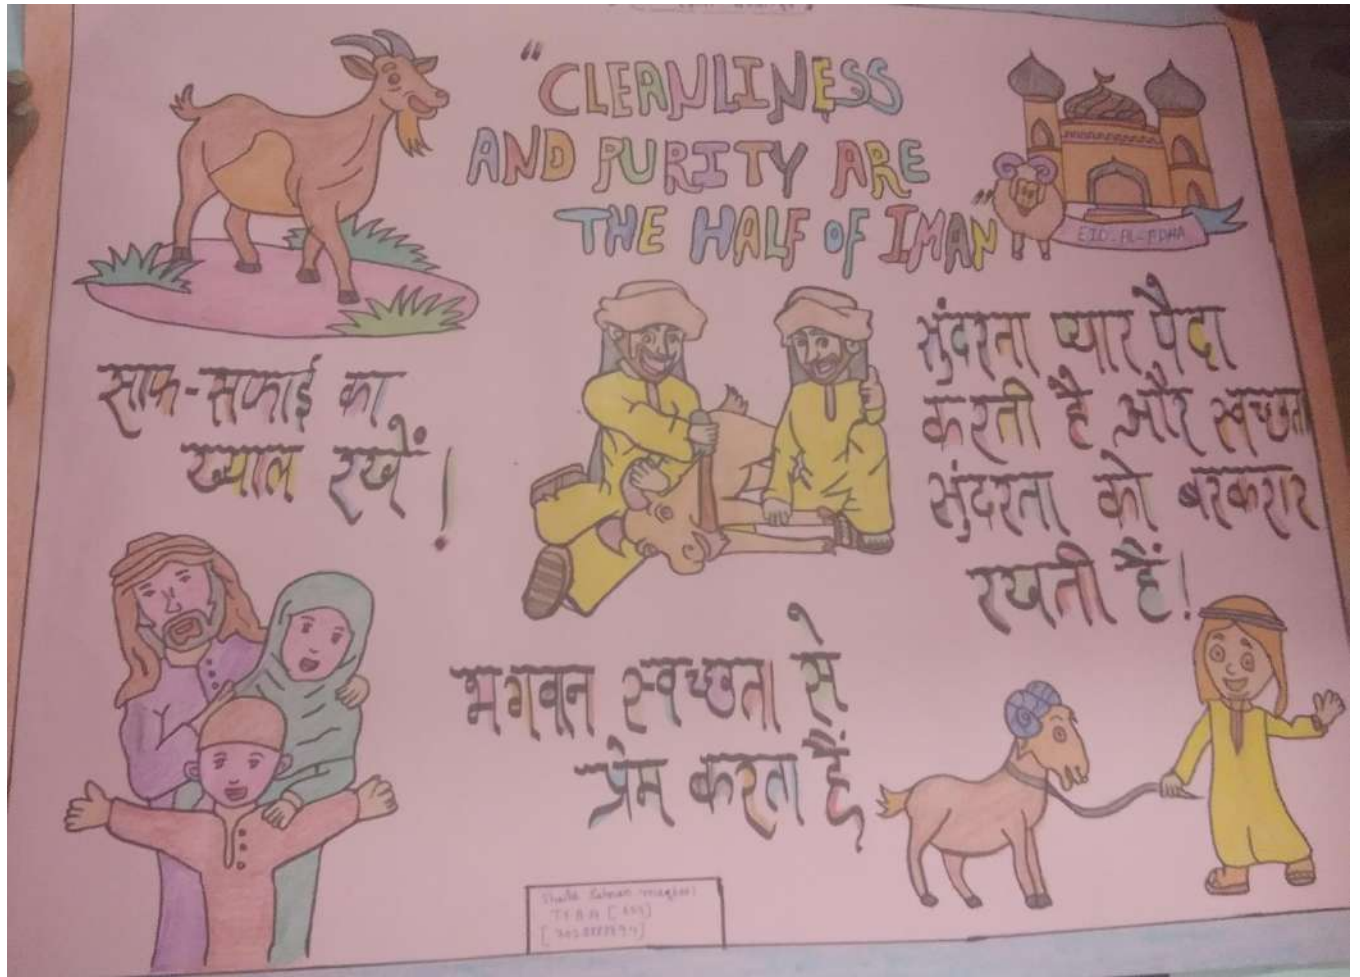 "CLEANLINESS
AND PURITY ARE
THE HALF OF IMAN"
EID-AL-ADHA
साफ-सफाई का
ख्याल रखें!
सुंदरता प्यार पैदा
करती है और स्वच्छता
सुंदरता को बरकरार
रखती हैं!
भगवान स्वच्छता से
प्रेम करता हैं